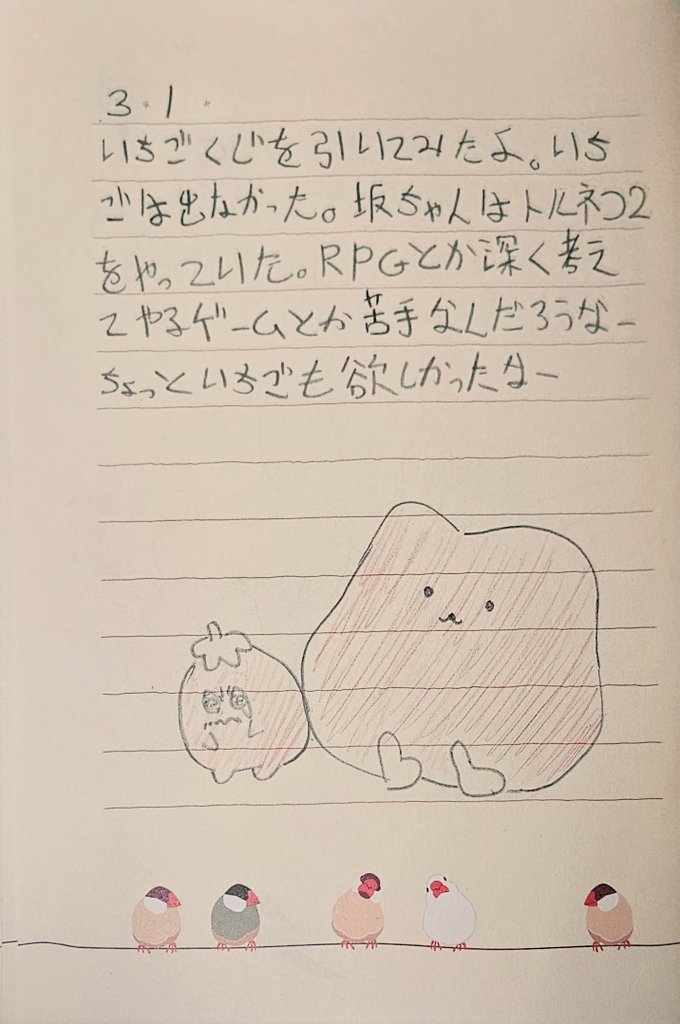 3.1
いちごくじを引いてみたよ。いち
ごは出なかった。坂ちゃんはトルネコ2
をやっていた。RPGとか深く考え
てやるゲームとか苦手なんだろうなー
ちょっといちごも欲しかったなー